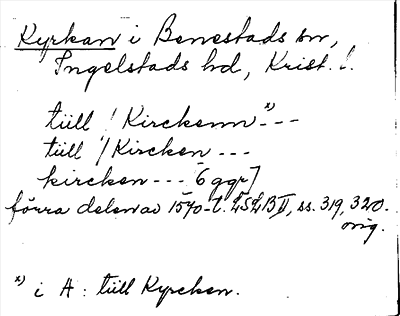 Kyrkan i Benestads sn,
Ingelstads hd, Krist. l.
tüll / Kirckenn x) ---
tüll / Kircken ---
kircken --- [6 ggr]
förra delen av 1570-t. LSLB II, ss. 319, 320.
orig.
x) i A: tüll Kyrcken.